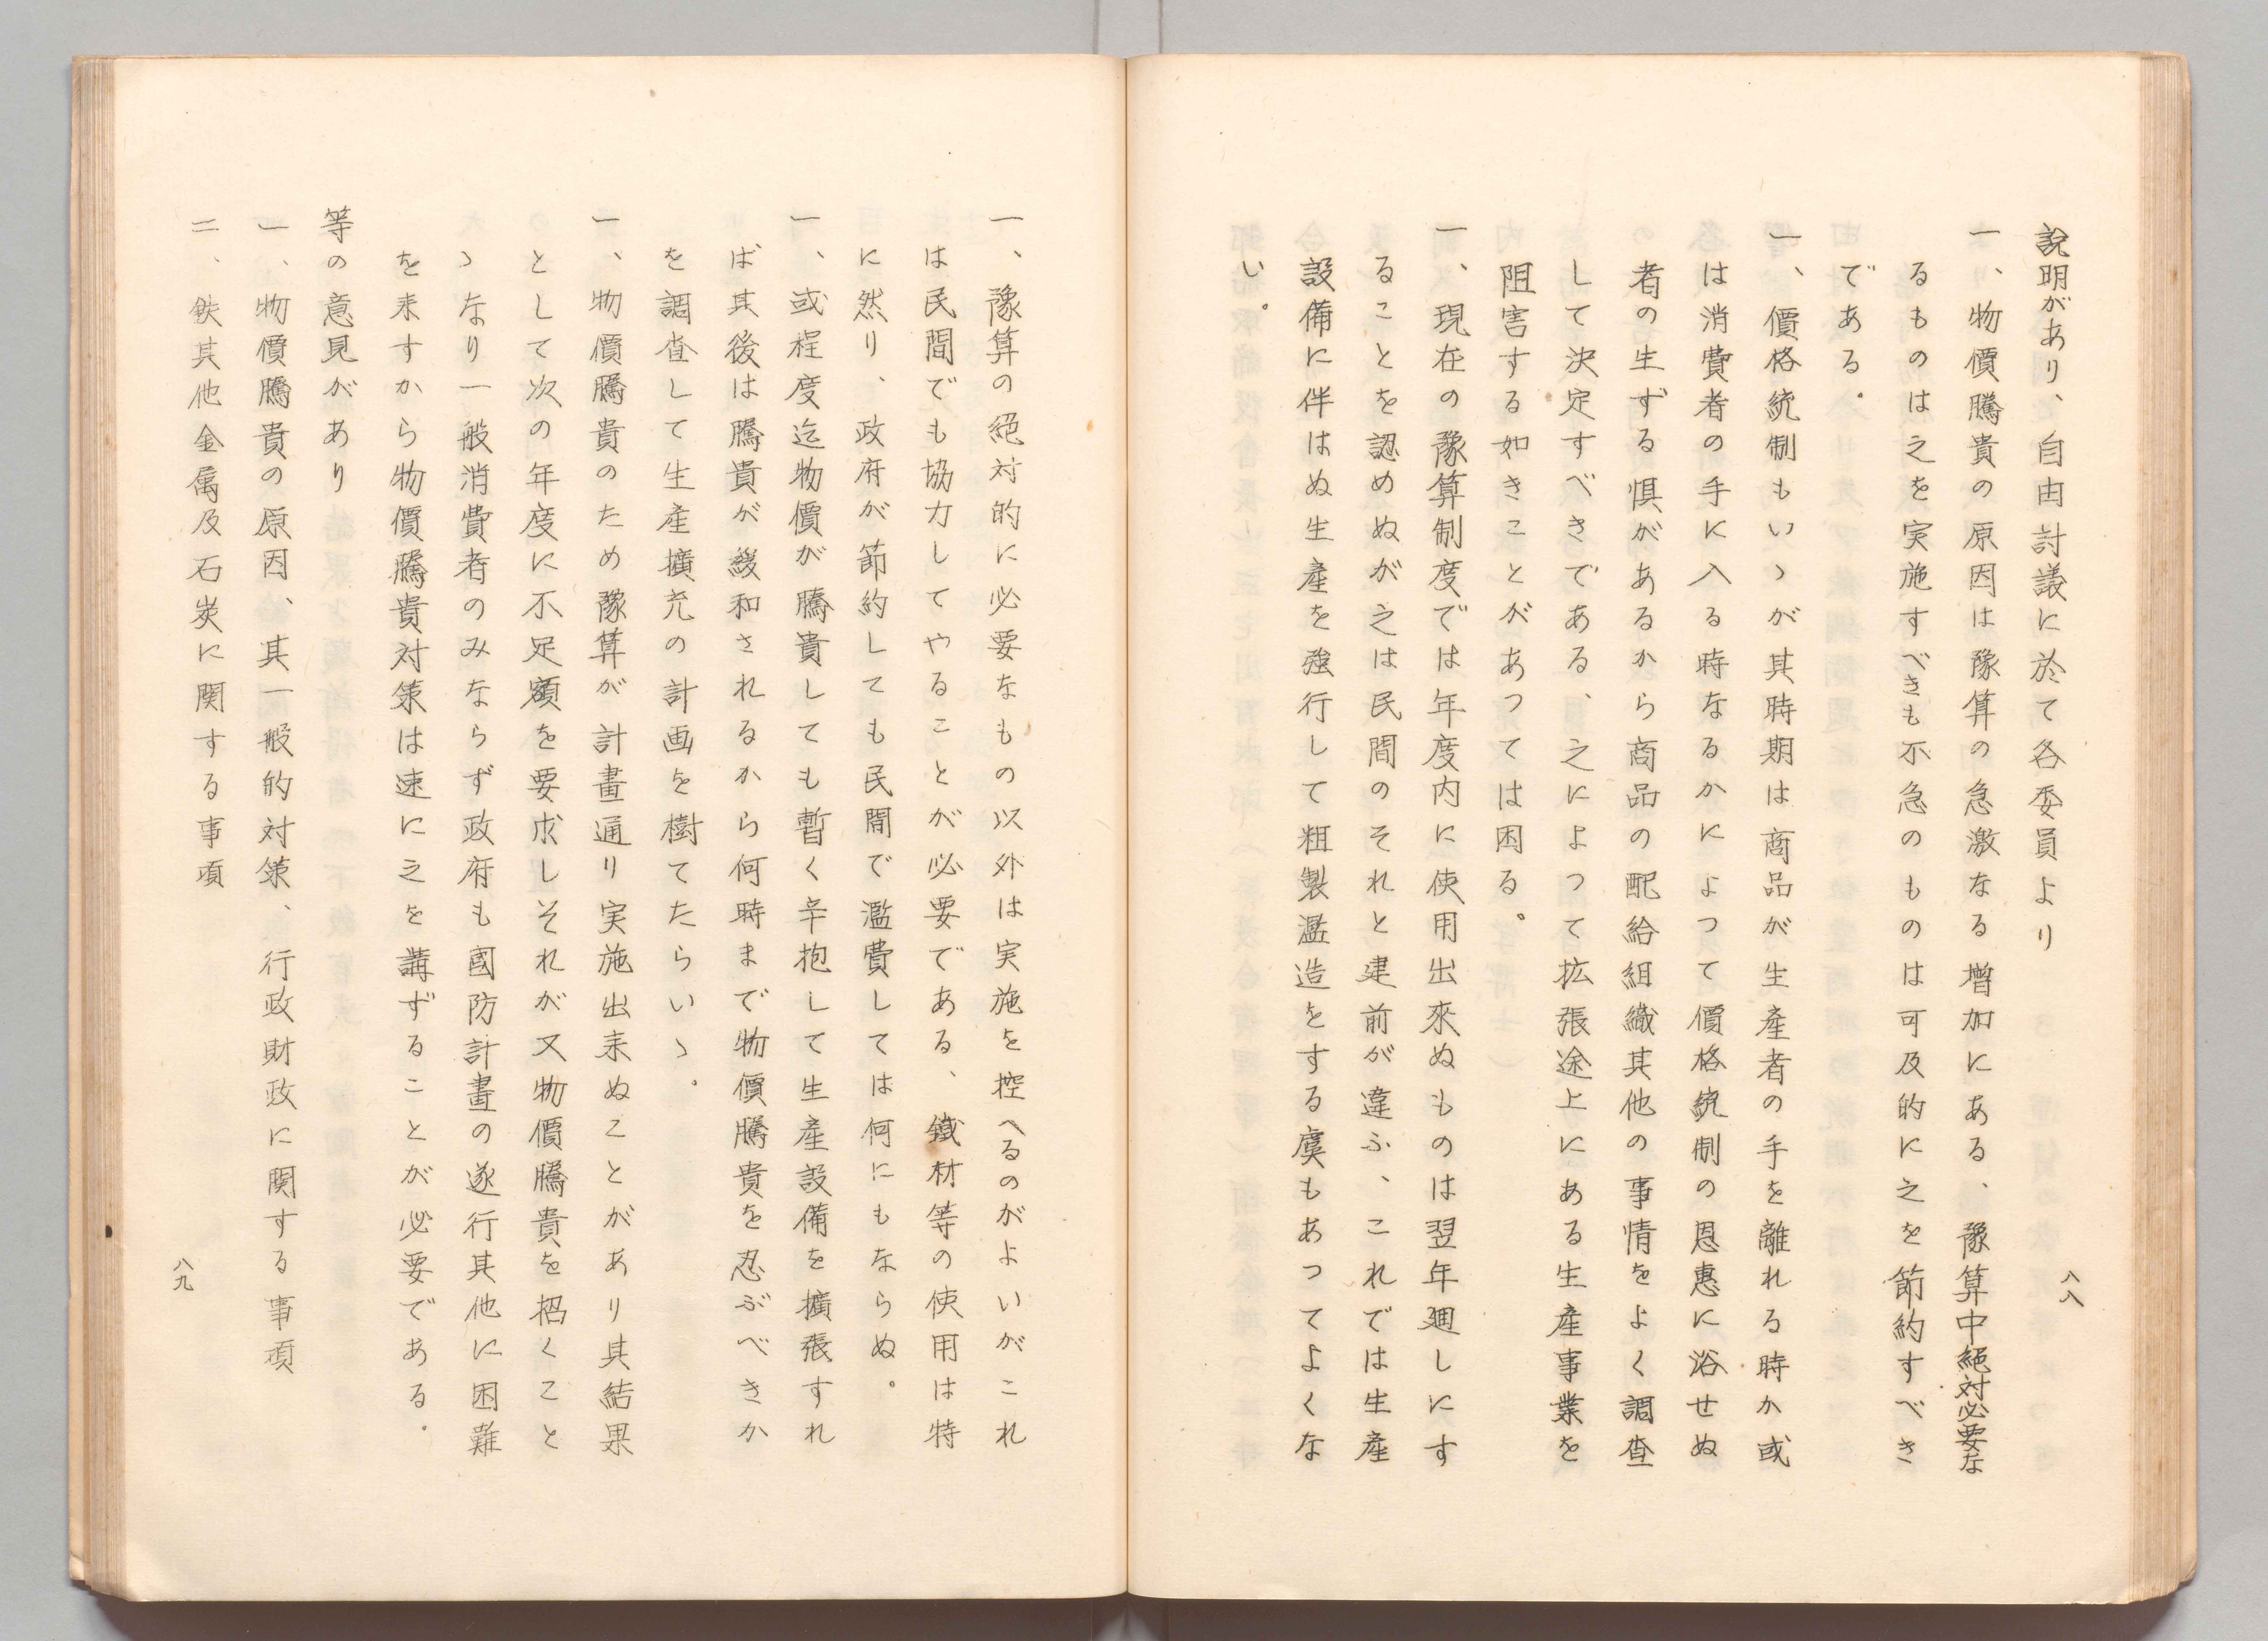 八八
説明があり、自由討議に於て各委員より
一、物價騰貴の原因は豫算の急激なる増加にある、豫算中絶対必要な
るものは之を実施すべきも不急のものは可及的に之を節約すべき
である。
一、價格統制もいゝが其時期は商品が生産者の手を離れる時か或
は消費者の手に入る時なるかによつて價格統制の恩惠に浴せぬ
者の生ずる惧があるから商品の配給組織其他の事情をよく調査
して決定すべきである、之によつて拡張途上にある生産事業を
阻害する如きことがあつては困る。
一、現在の豫算制度では年度内に使用出來ぬものは翌年廻しにす
ることを認めぬが之は民間のそれと建前が違ふ、これでは生産
設備に伴はぬ生産を強行して粗製濫造をする虞もあつてよくな
い。
一、豫算の絶対的に必要なもの以外は実施を控へるのがよいがこれ
は民間でも協力してやることが必要である、鐵材等の使用は特
に然り、政府が節約しても民間で濫費しては何にもならぬ。
一、或程度迄物價が騰貴しても暫く辛抱して生産設備を擴張すれ
ば其後は騰貴が緩和されるから何時まで物價騰貴を忍ぶべきか
を調査して生産擴充の計画を樹てたらいゝ。
一、物價騰貴のため豫算が計畫通り実施出来ぬことがあり其結果
として次の年度に不足額を要求しそれが又物價騰貴を招くこと
ゝなり一般消費者のみならず政府も國防計畫の遂行其他に困難
を来すから物價騰貴対策は速に之を講ずることが必要である。
等の意見があり
一、物價騰貴の原因、其一般的対策、行政財政に関する事項
二、鉄其他金属及石炭に関する事項
八九